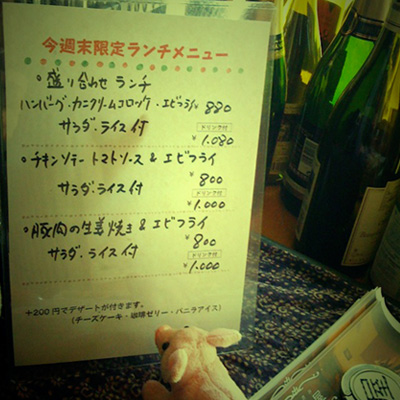 今週末限定ランチメニュー
盛り合わせ ランチ
ハンバーグ・カニクリームコロッケ・エビフライ 880
サラダ・ライス付
ドリンク付
¥1.080
チキンソテー トマトソース & エビフライ
¥800
サラダ・ライス付
ドリンク付
¥1.000
豚肉の生姜焼き & エビフライ
¥800
サラダ・ライス付
ドリンク付
¥1.000
+200円でデザートが付きます。
(チーズケーキ・珈琲ゼリー・バニラアイス)